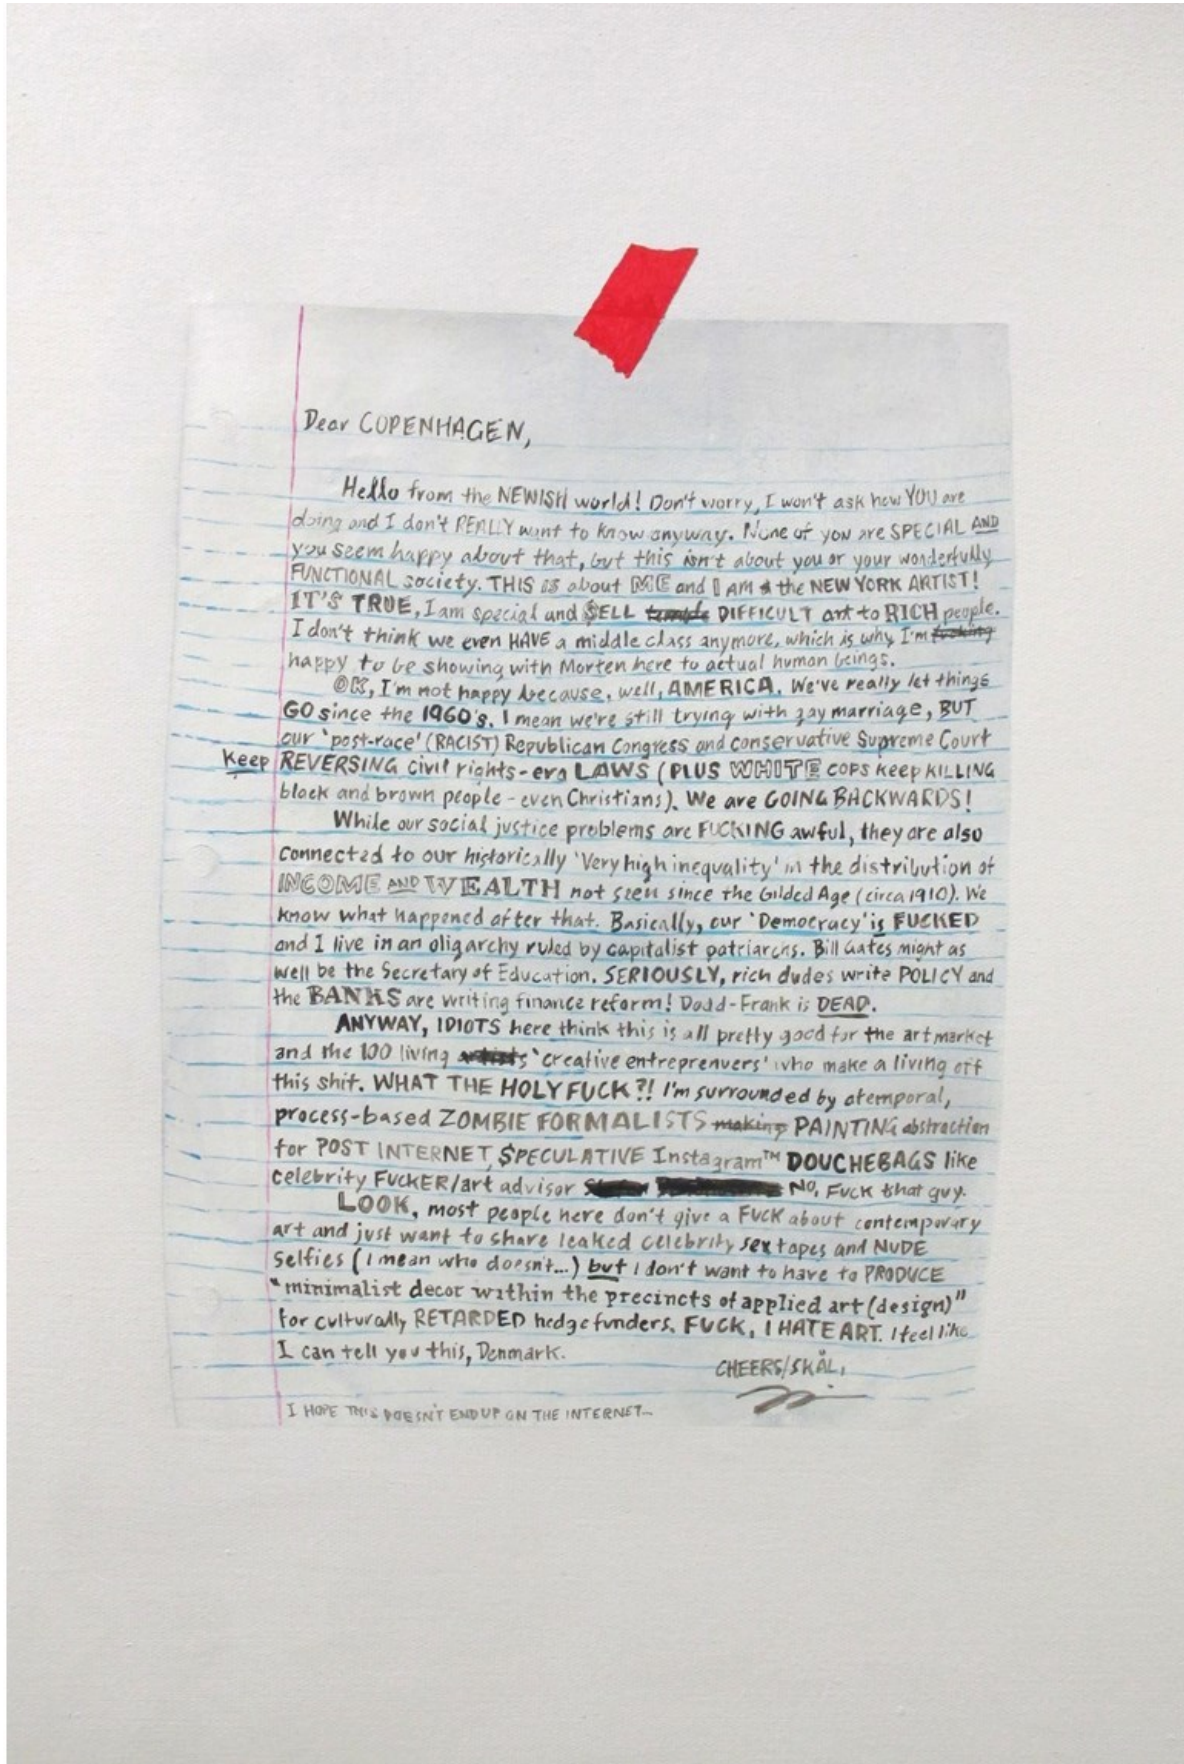 Dear COPENHAGEN,
Hello from the NEWISH world! Don't worry, I won't ask how YOU are
doing and I don't REALLY want to know anyway. None of you are SPECIAL AND
you seem happy about that, but this isn't about you or your wonderfully
FUNCTIONAL society. THIS IS about ME and I AM the NEW YORK ARTIST!
IT'S TRUE, I am special and $ELL DIFFICULT art to RICH people.
I don't think we even HAVE a middle class anymore, which is why I'm fucking
happy to be showing with Morten here to actual human beings.
OK, I'm not happy because, well, AMERICA. We've really let things
GO since the 1960's. I mean we're still trying with gay marriage, BUT
our 'post-race' (RACIST) Republican Congress and conservative Supreme Court
Keep REVERSING civil rights-era LAWS (PLUS WHITE COPS keep KILLING
black and brown people - even Christians). We are GOING BACKWARDS!
While our social justice problems are FUCKING awful, they are also
connected to our historically 'Very high inequality' in the distribution of
INCOME AND WEALTH not seen since the Gilded Age (circa 1910). We
know what happened after that. Basically, our 'Democracy' is FUCKED
and I live in an oligarchy ruled by capitalist patriarchs. Bill Gates might as
well be the Secretary of Education. SERIOUSLY, rich dudes write POLICY and
the BANKS are writing finance reform! Dodd-Frank is DEAD.
ANYWAY, IDIOTS here think this is all pretty good for the art market
and the 100 living artists 'creative entreprenuers' who make a living off
this shit. WHAT THE HOLY FUCK?! I'm surrounded by atemporal,
process-based ZOMBIE FORMALISTS making PAINTING abstraction
for POST INTERNET, $PECULATIVE Instagram™ DOUCHEBAGS like
celebrity FUCKER/art advisor NO, FUCK that guy.
LOOK, most people here don't give a FUCK about contemporary
art and just want to share leaked celebrity sex tapes and NUDE
selfies (I mean who doesn't...) but I don't want to have to PRODUCE
"minimalist decor within the precincts of applied art (design)"
for culturally RETARDED hedge funders. FUCK, I HATE ART. I feel like
I can tell you this, Denmark.
CHEERS/SKÅL,
I HOPE THIS DOESN'T END UP ON THE INTERNET...